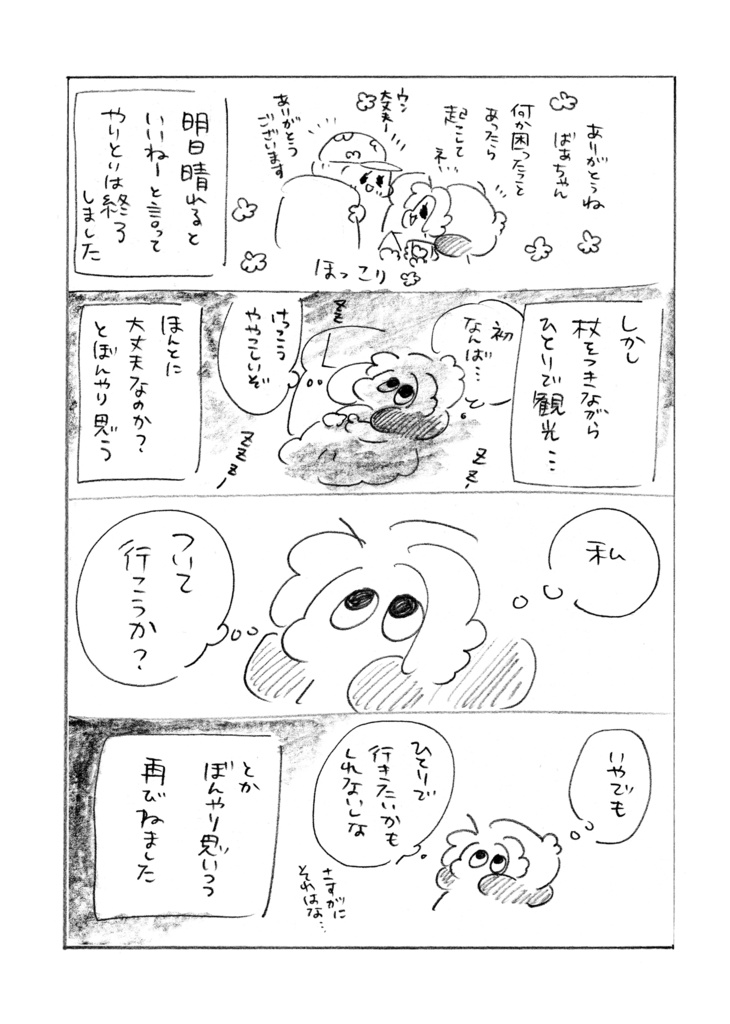 ありがとうね
ばあちゃん
何か困ったこと
あったら
起こして
ネ
ウン
大丈夫ー
ありがとう
ございます
ほっこり
明日晴れると
いいねーと言って
やりとりは終了
しました
しかし
杖をつきながら
ひとりで観光…
初
なんば…
zz
けっこう
ややこしいぞ
zzz
zz
ほんとに
大丈夫なのか?
とぼんやり思う
私
ついて
行こうか?
いやでも
ひとりで
行きたいかも
しれないしな
さすがに
それはな…
とか
ぼんやり思いつつ
再びねました